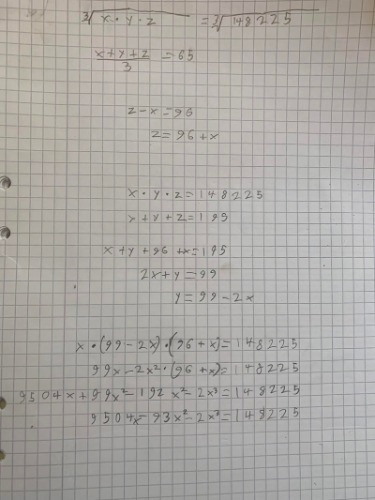 ∛x · y · z = ∛148225
(x+y+z)/3 = 65
z-x=96
z=96+x
x · y · z=148225
x+y+z=195
x+y+96+x=195
2x+y=99
y=99-2x
x·(99-2x)·(96+x)=148225
99x-2x²·(96+x)=148225
9504x+99x²-192x²-2x³=148225
9504x-93x²-2x³=148225